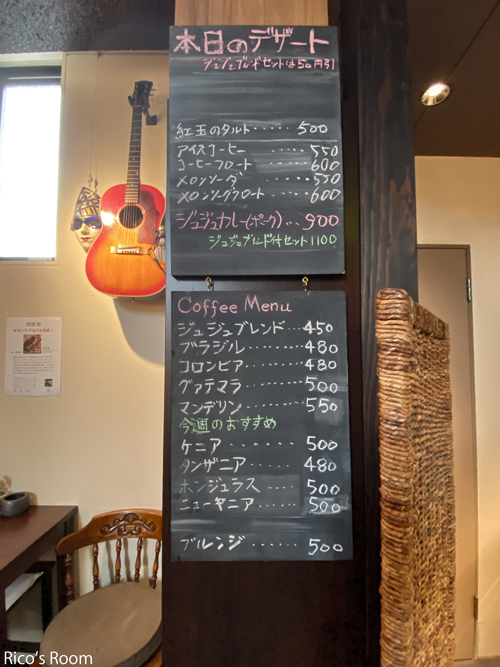 本日のデザート
ジュジュブレンドセットは50円引
紅玉のタルト・・・・・500
アイスコーヒー・・・・550
コーヒーフロート・・・・600
メロンソーダ・・・・550
メロンソーダフロート・・600
ジュジュカレー(ポーク)・・・900
ジュジュブレンド付セット1100
Coffee Menu
ジュジュブレンド・・・・450
ブラジル・・・・・・480
コロンビア・・・・・480
グァテマラ・・・・・500
マンデリン・・・・・550
今週のおすすめ
ケニア・・・・・・・500
タンザニア・・・・・480
ホンジュラス・・・・500
ニューギニア・・・・500
ブルンジ・・・・・・500
Rico's Room